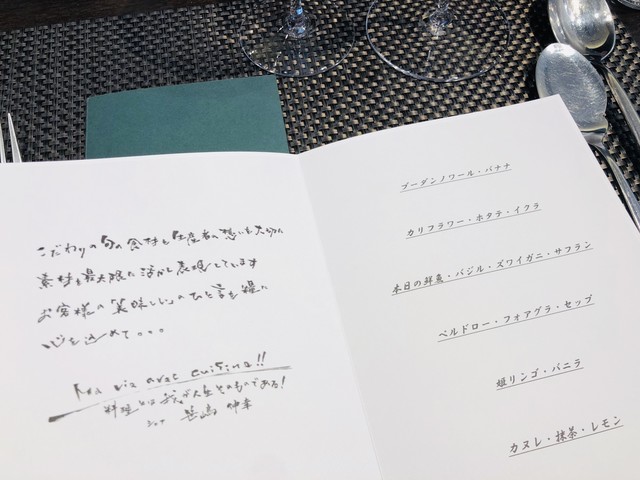 こだわりの旬の食材と生産者の想いも大切に
素材を最大限に活かし表現しています
お客様の「美味しい」のひと言を糧に
心を込めて。。。
Ma vie avec cuisine!!
料理とは我が人生そのものである!
シェフ 笹島 伸幸
ブーダンノワール・バナナ
カリフラワー・ホタテ・イクラ
本日の鮮魚・バジル・ズワイガニ・サフラン
ペルドロー・フォアグラ・セップ
姫リンゴ・バニラ
カヌレ・抹茶・レモン